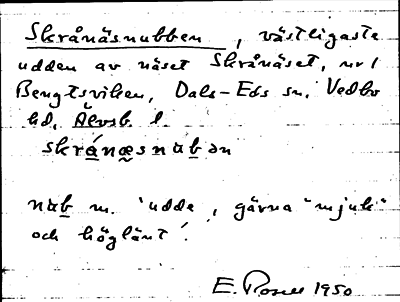 Skrånäsnubben, västligaste
udden av näset Skrånäset, nv/
Bengtsviken, Dals-Eds sn, Vedbo
hd, Älvsb. l.
skrånæsnubən
nub m. 'udde, gärna "mjuk"
och höglänt'.
E. Rosell 1950